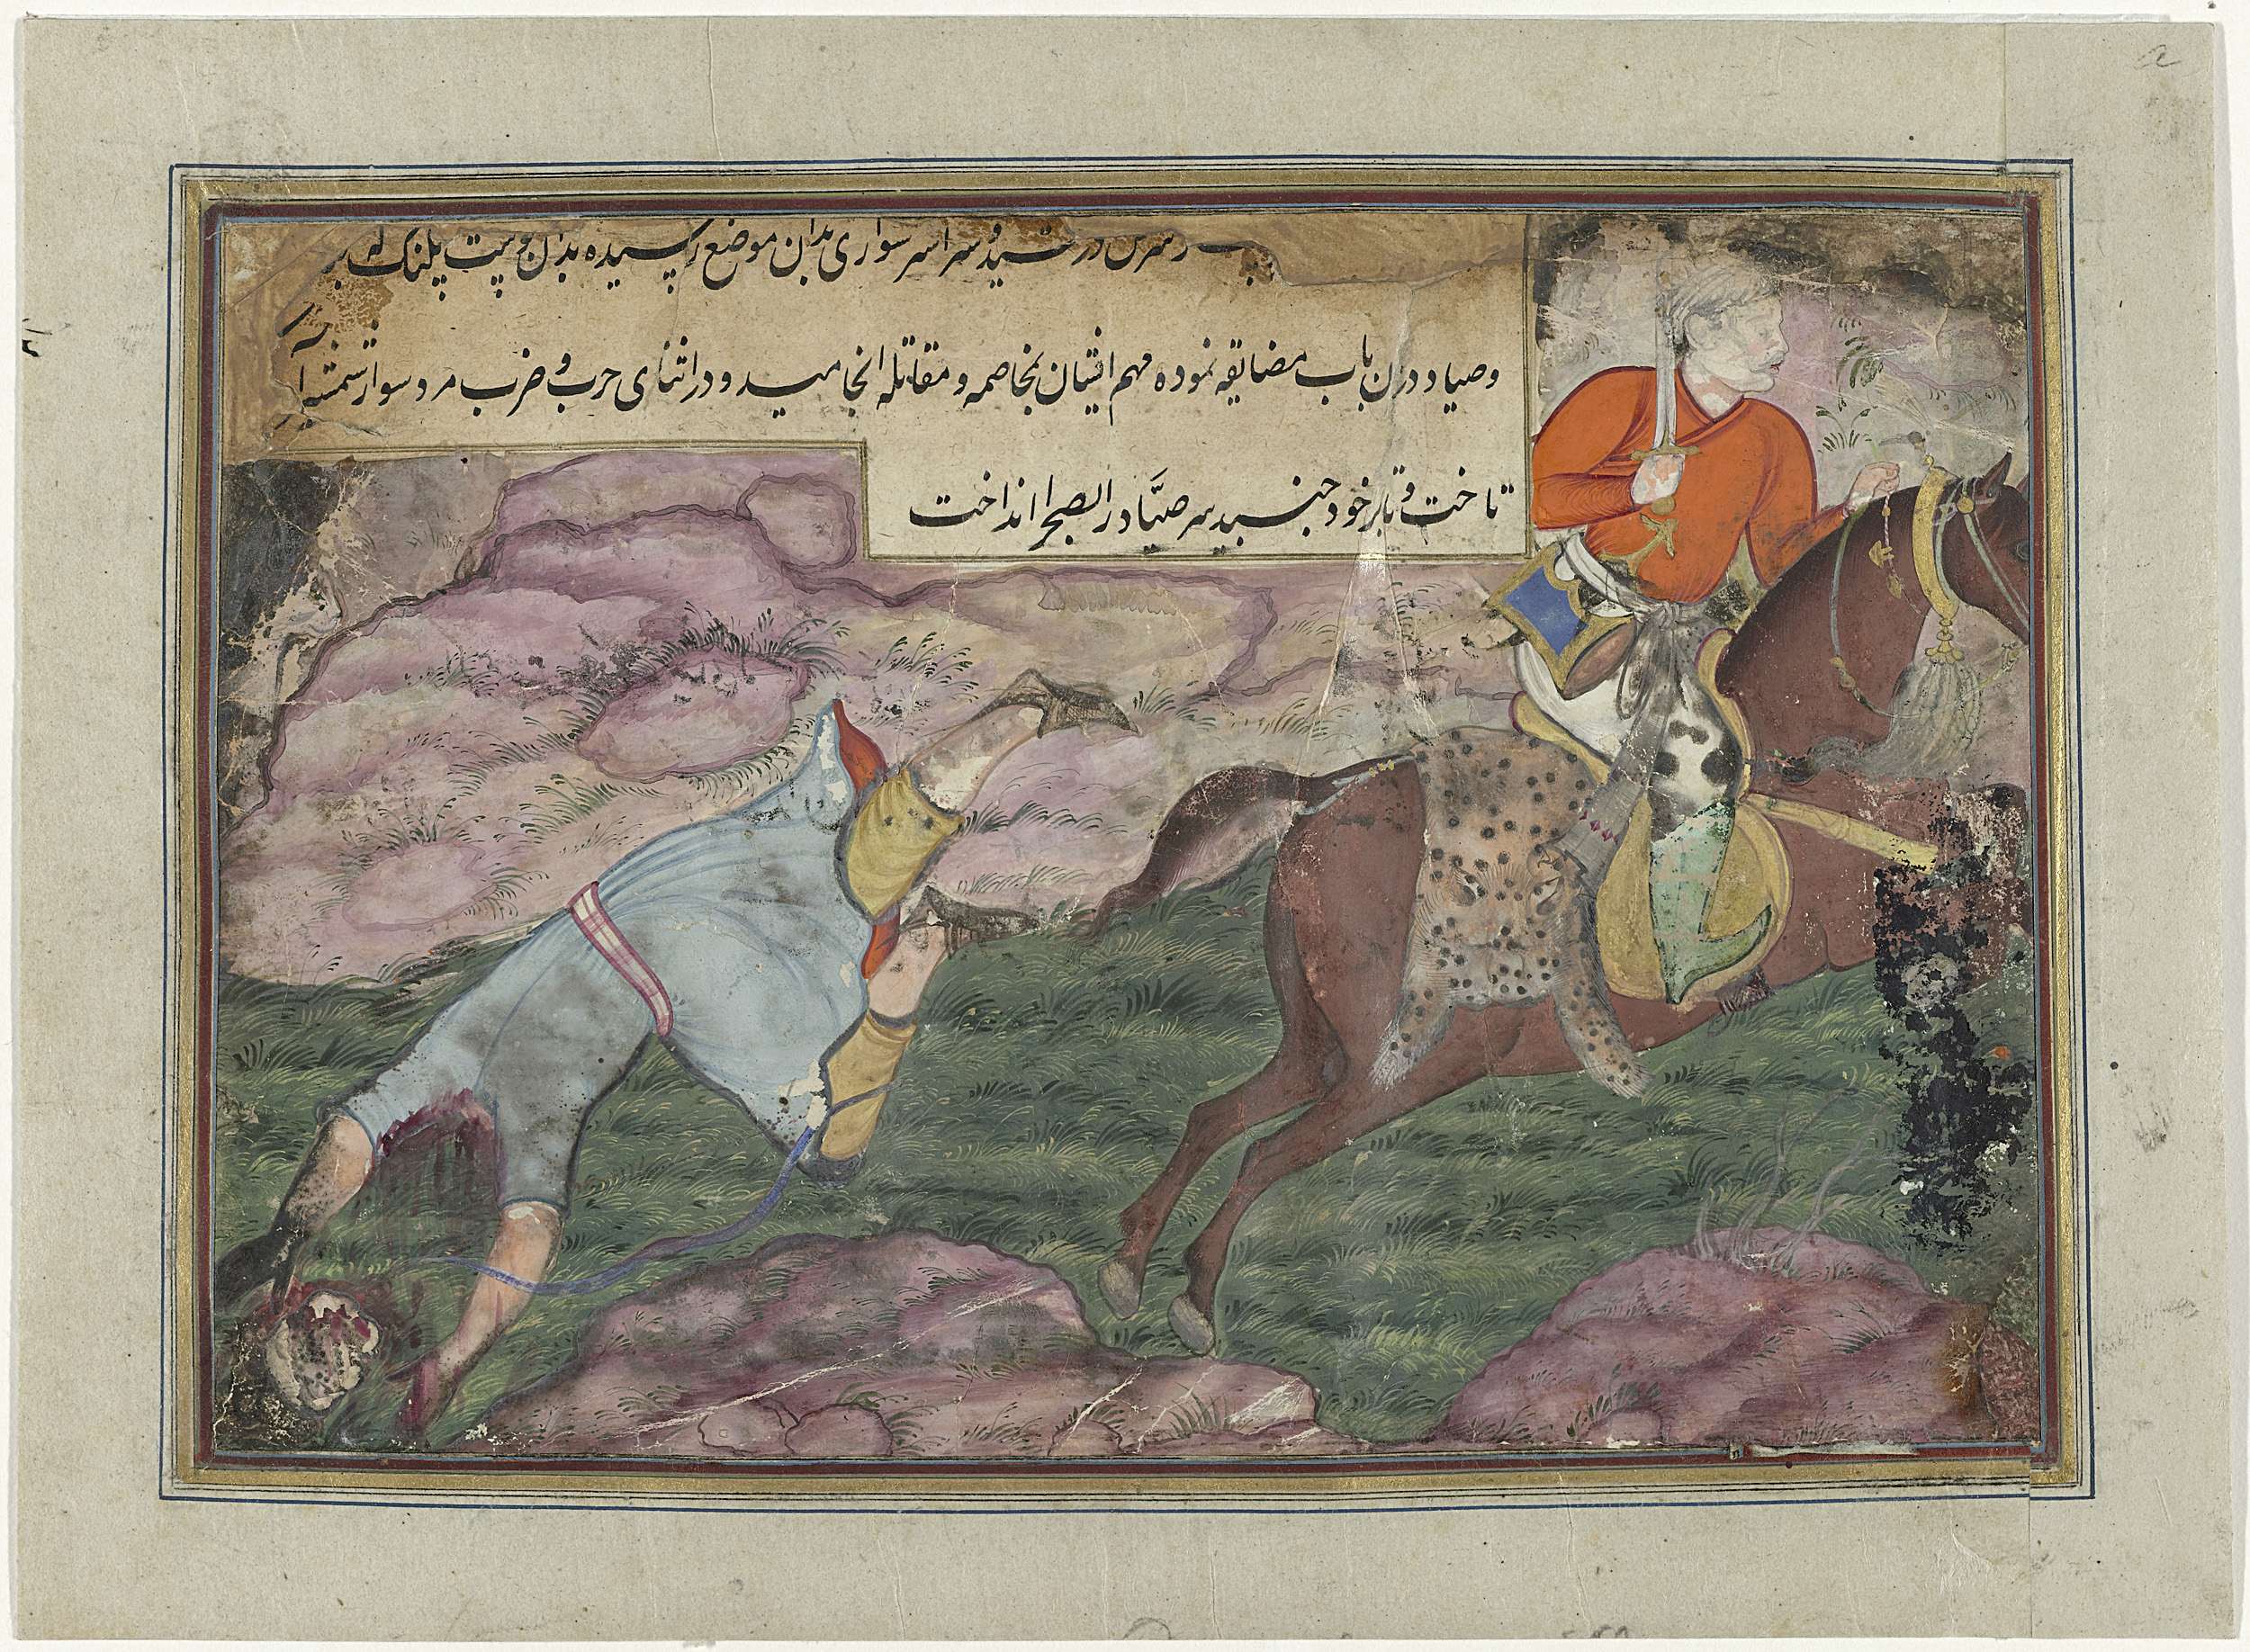 سراسر سواری بدان موضع رسیده بدان پوست پلنک
وصیاد دران باب مضایقه نموده مهم ایشان بمخاصمه و مقاتله انجامید و در اثنای حرب و ضرب مرد سوار شمشیر
تاخت و تا بر خود جنبید سر صیاد در ان صحرا انداخت
a